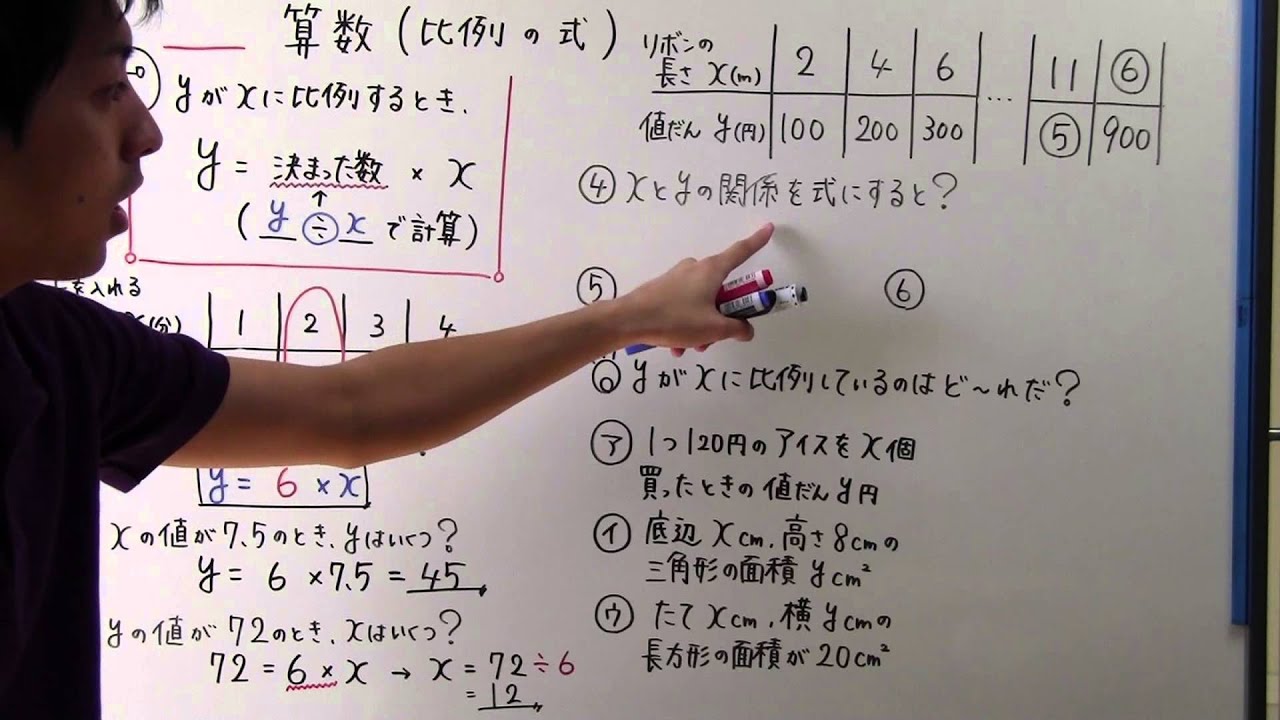 算数(比例の式)
yがxに比例するとき、
y = 決まった数 × x
(y ÷ xで計算)
を入れる
(分) 1 2 3 4
y = 6 × x
xの値が7.5のとき、yはいくつ?
y = 6 × 7.5 = 45
yの値が72のとき、xはいくつ?
72 = 6 × x → x = 72 ÷ 6
= 12
リボンの
長さ x(m) 2 4 6 … 11 ⑥
値だん y(円) 100 200 300 ⑤ 900
④ xとyの関係を式にすると?
⑤ ⑥
yがxに比例しているのはど〜れだ?
㋐ 1つ120円のアイスをx個
買ったときの値だんy円
㋑ 底辺xcm、高さ8cmの
三角形の面積ycm²
㋒ たてxcm、横ycmの
長方形の面積が20cm²